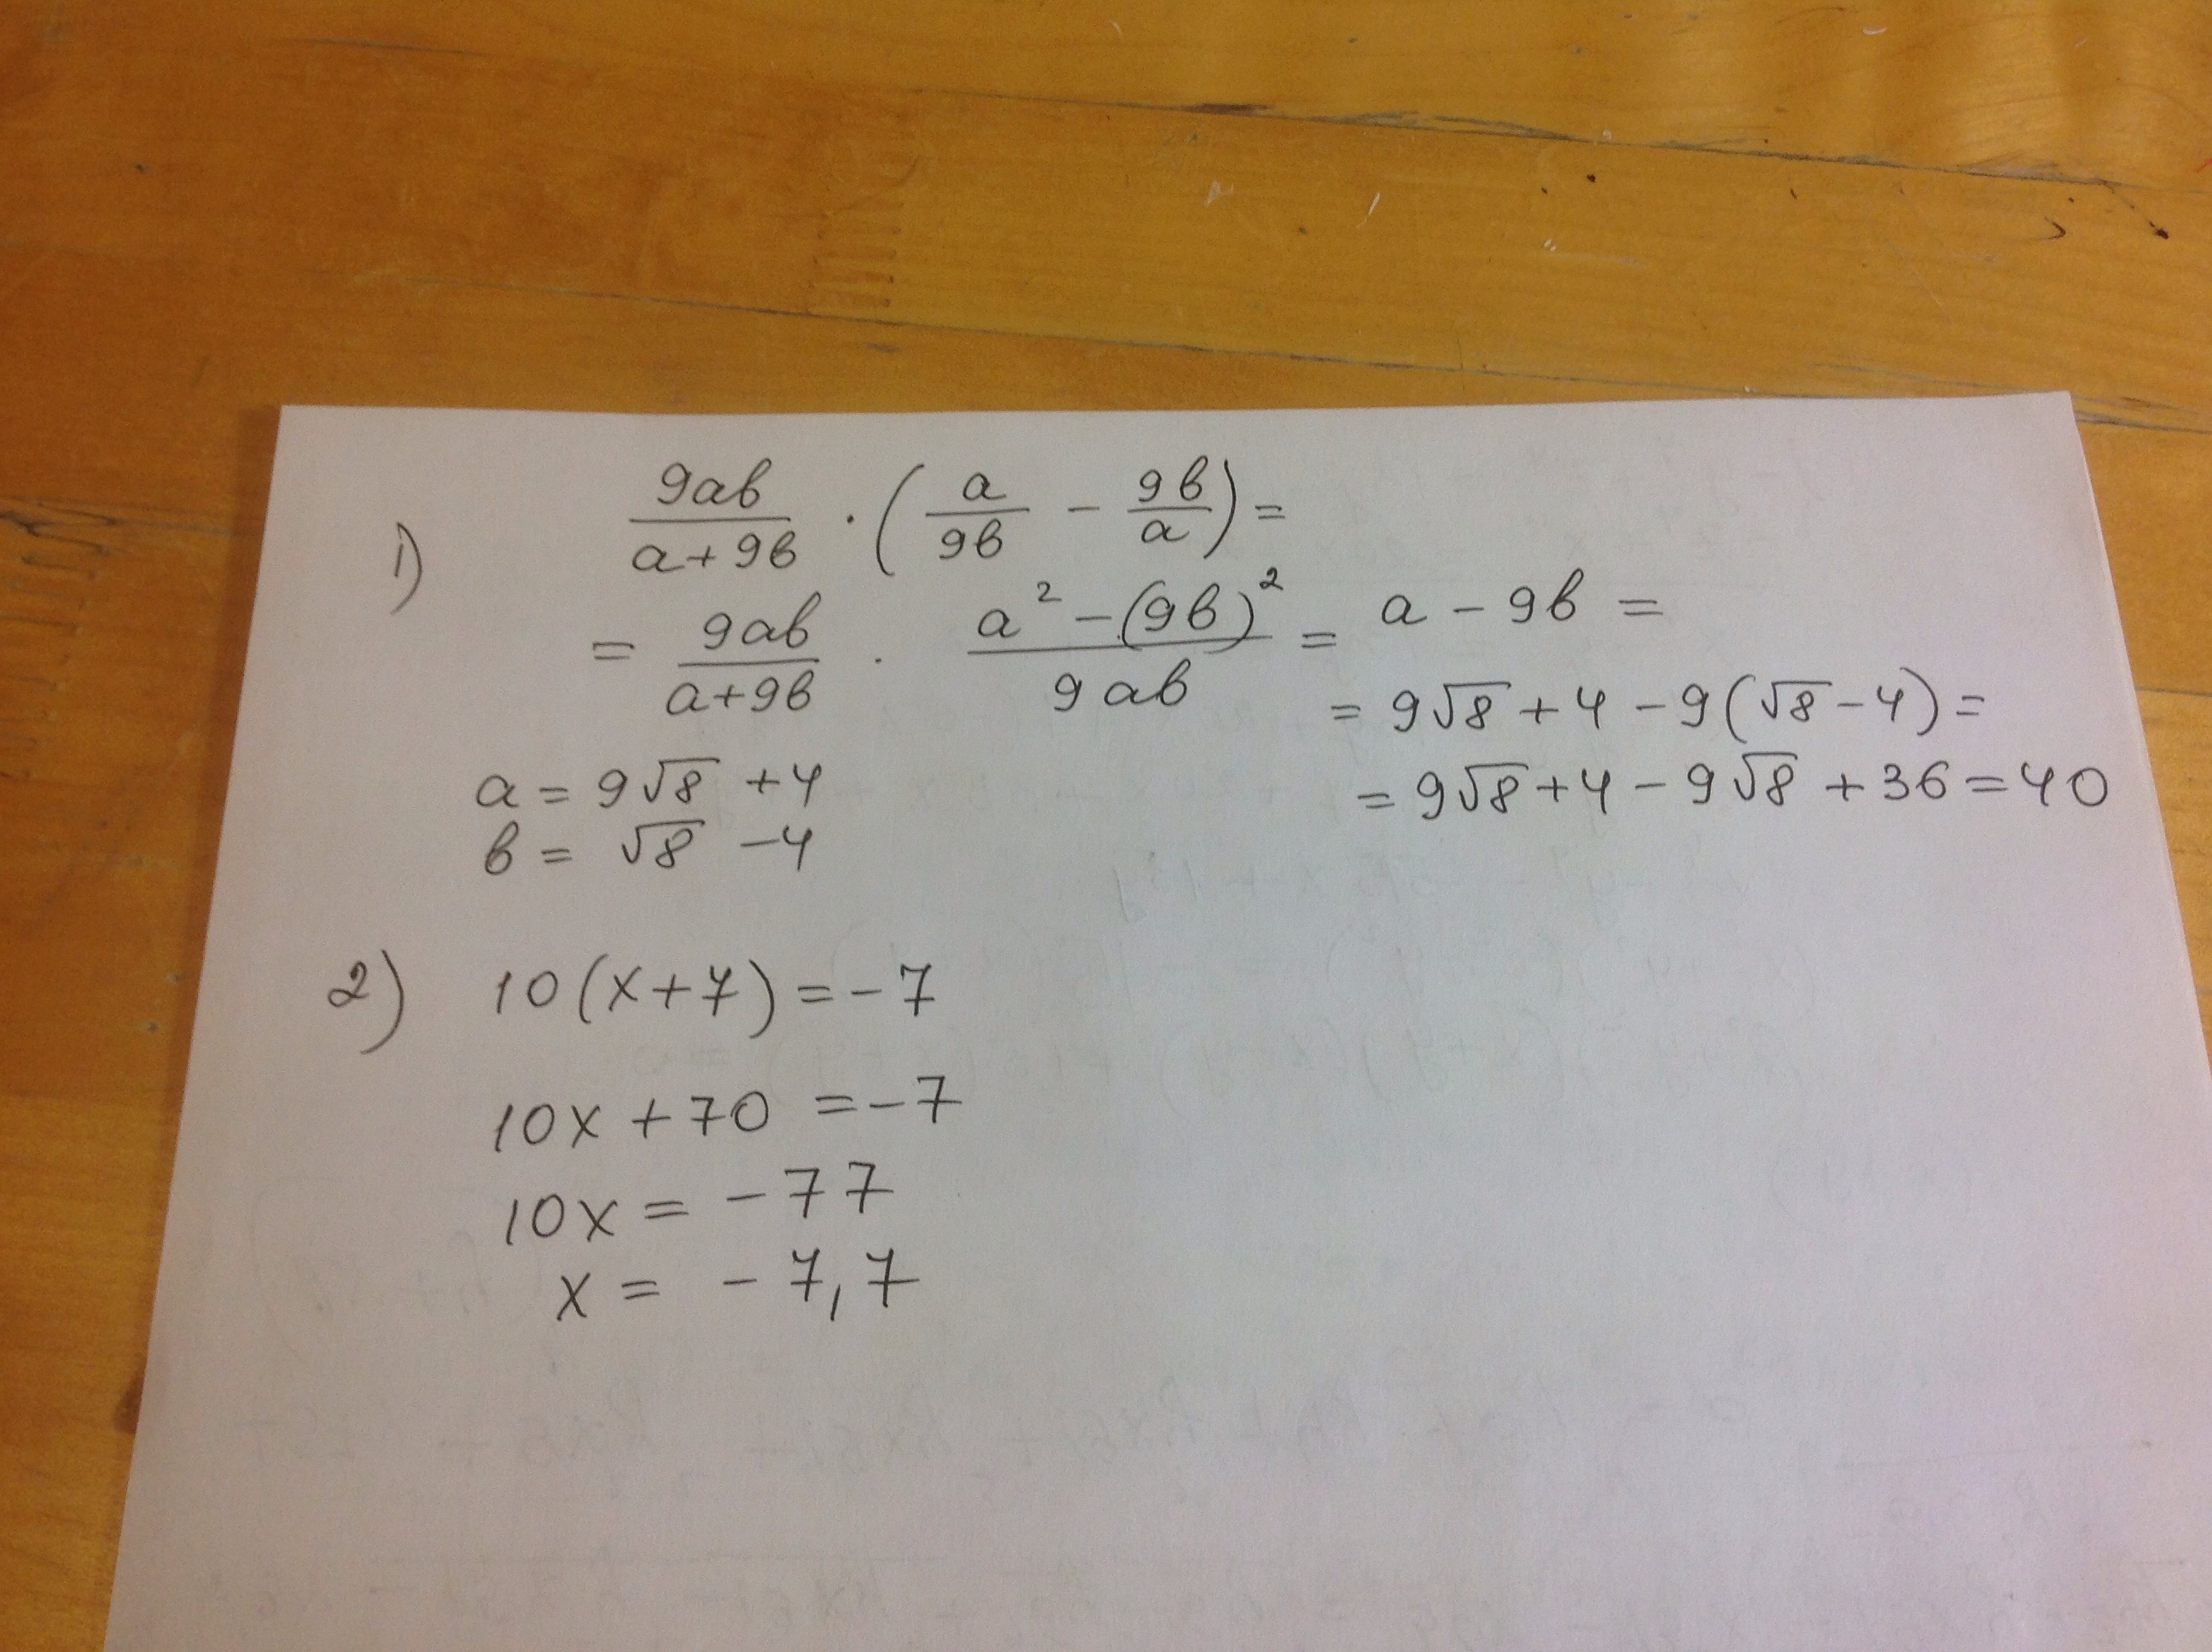 1) 9ab/(a+9b) · (a/9b − 9b/a) =
= 9ab/(a+9b) · (a² − (9b)²)/9ab = a − 9b =
= 9√8 + 4 − 9(√8 − 4) =
= 9√8 + 4 − 9√8 + 36 = 40
a = 9√8 + 4
b = √8 − 4
2) 10(x+7) = −7
10x + 70 = −7
10x = −77
x = −7,7